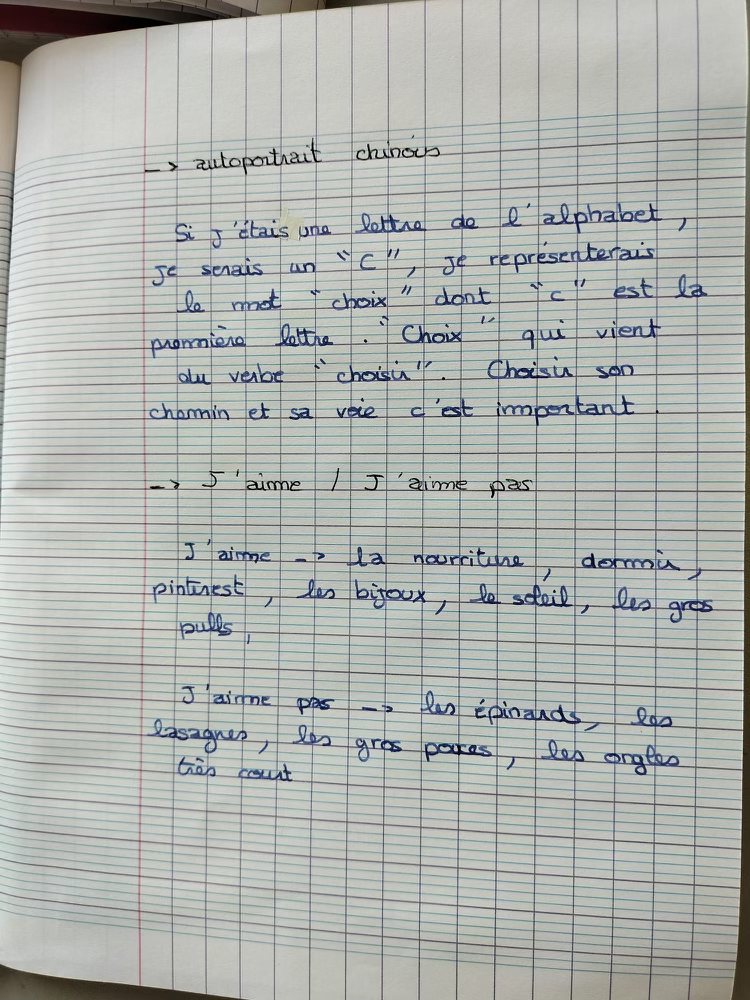 -> autoportrait chinois
Si j'étais une lettre de l'alphabet,
je serais un "C", je représenterais
le mot "choix" dont "c" est la
première lettre. "Choix" qui vient
du verbe "choisir". Choisir son
chemin et sa voie c'est important.
-> J'aime / J'aime pas
J'aime -> la nourriture, dormir,
pintrest, les bijoux, le soleil, les gros
pulls,
J'aime pas -> les épinards, les
lasagnes, les gros pouces, les ongles
très court